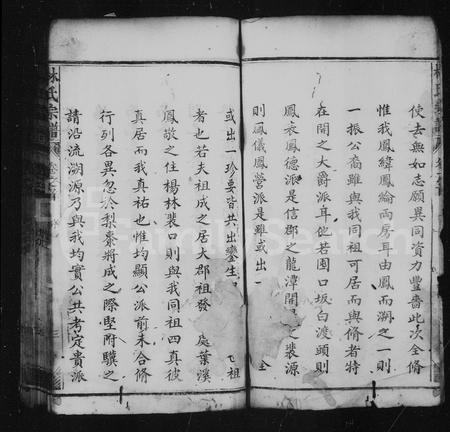 使去無如志願異同資力豐嗇此次全脩
惟我鳳緯鳳綸兩房耳由鳳而溯之一則
一振公裔雖與我同祖可居而與脩者特
在開之大爵派耳他若園口坂白渡頭則
鳳衣鳳德派是信郡之龍潭開 之裴源
則鳳儀鳳營派是雖或出一 全
或出一珍要皆共出鑾生 祖
者也若夫祖成之居大郡祖發 處葉溪
鳳敬之住楊林裴口則與我同祖四真彼
真居而我真祐也惟均顯公派前未合脩
行列各異忽於梨棗將成之際堅附驥之
請沿流溯源乃與我均實公共考定貴派
林氏宗譜 卷之首
林氏宗譜 卷之首
FamilySearch